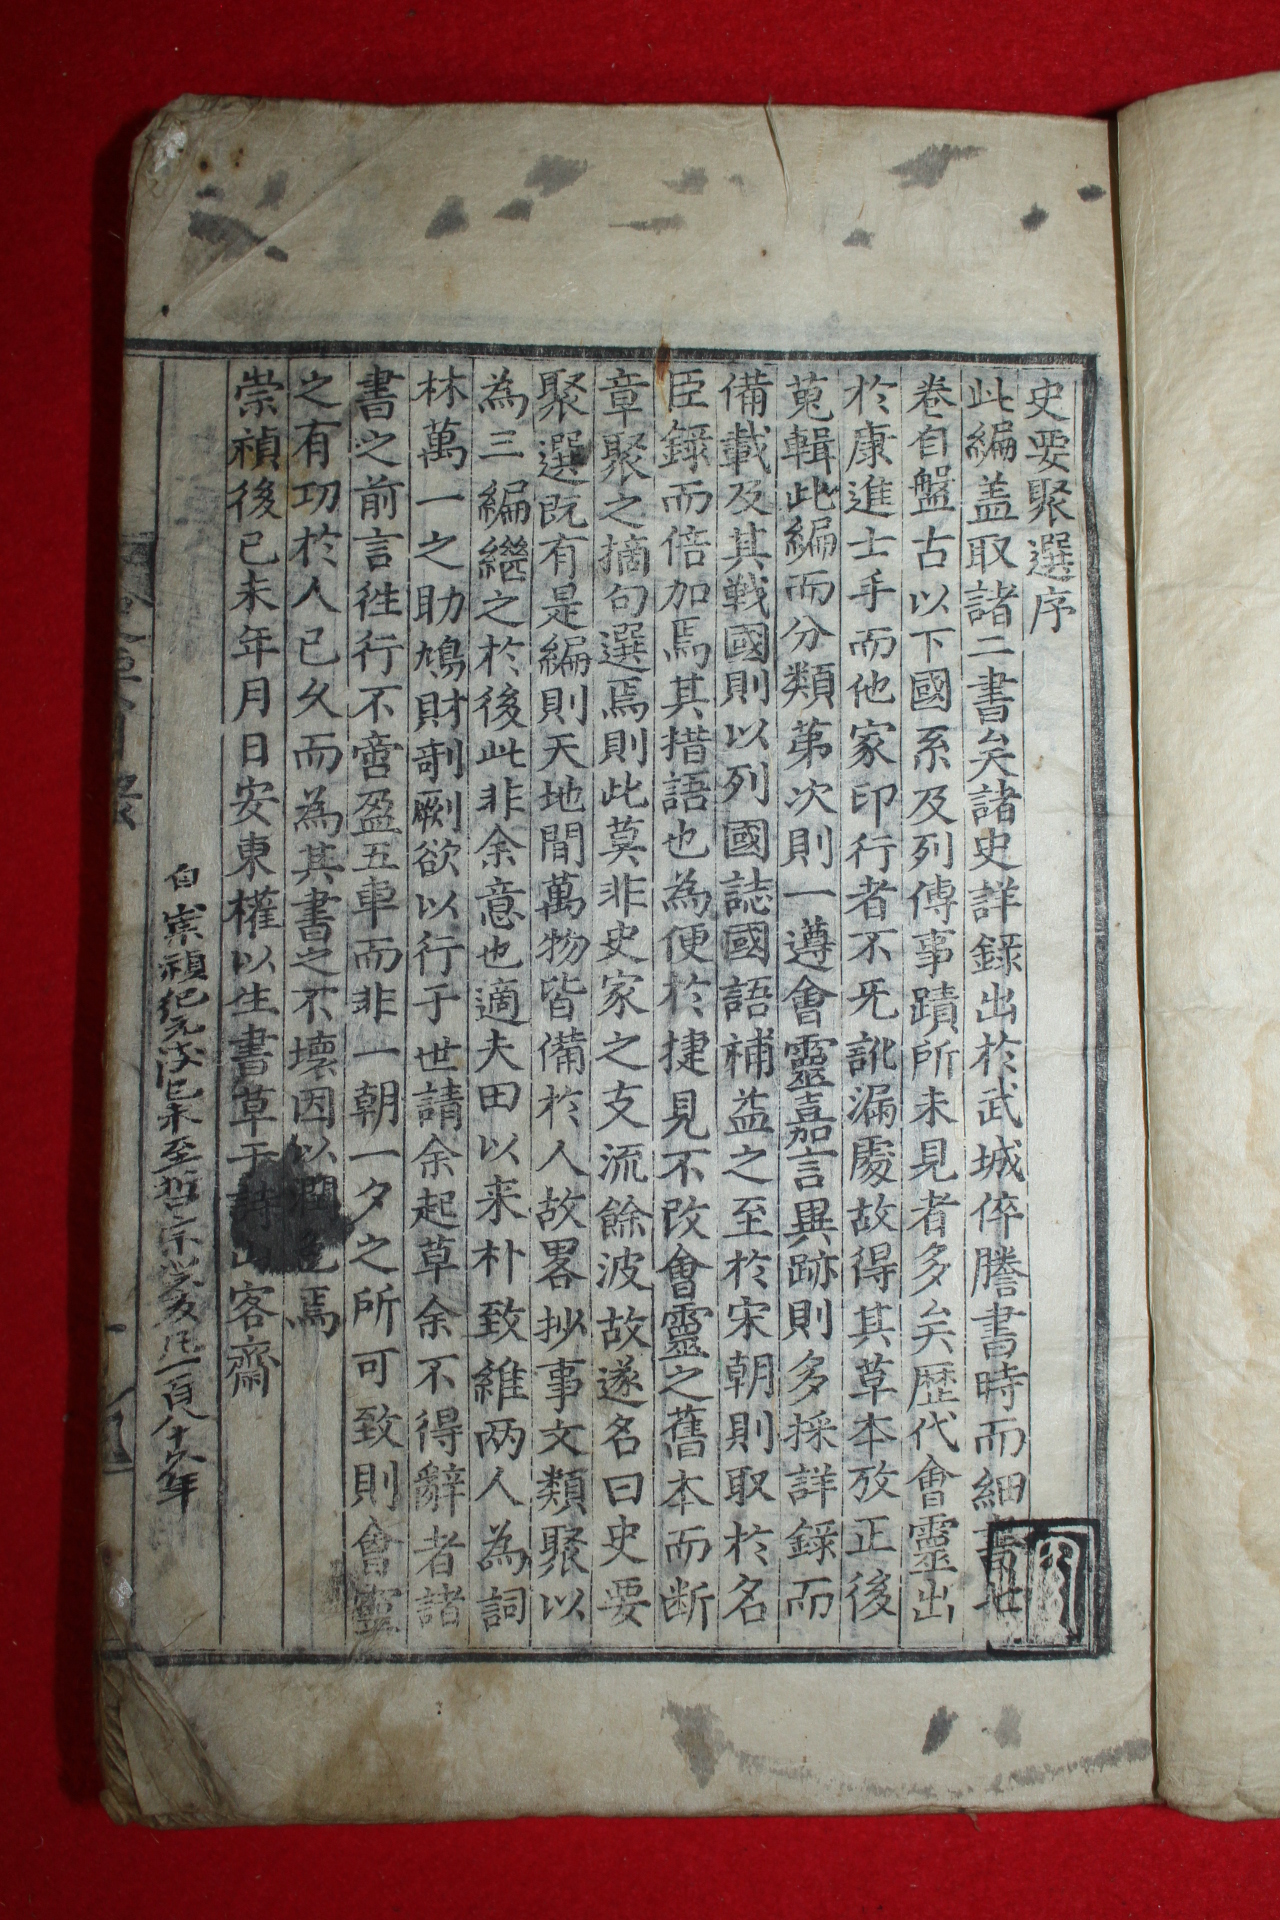 史要聚選序
此編盖取諸二書矣諸史詳錄出於武城倅謄書時而細書七
卷自盤古以下國系及列傳事蹟所未見者多矣歷代會靈出
於康進士手而他家印行者不旡訛漏處故得其草本攷正後
蒐輯此編而分類苐次則一遵會靈嘉言異跡則多採詳錄而
備載及其戰國則以列國誌國語補益之至於宋朝則取於名
臣錄而倍加焉其措語也為便於捷見不改會靈之舊本而断
章聚之摘句選焉則此莫非史家之支流餘波故遂名曰史要
聚選旣有是編則天地間萬物皆備於人故畧抄事文類聚以
為三編繼之於後此非余意也適夫田以来朴致維兩人為詞
林萬一之助鳩財剞劂欲以行于世請余起草余不得辭者諸
書之前言徃行不啻盈五車而非一朝一夕之所可致則會靈
之有功於人已久而為其書之不壞因以潤色焉
崇禎後己未年月日安東權以生書草于詩山客齋
自崇禎紀元後己未至哲宗癸亥凡一百八十五年